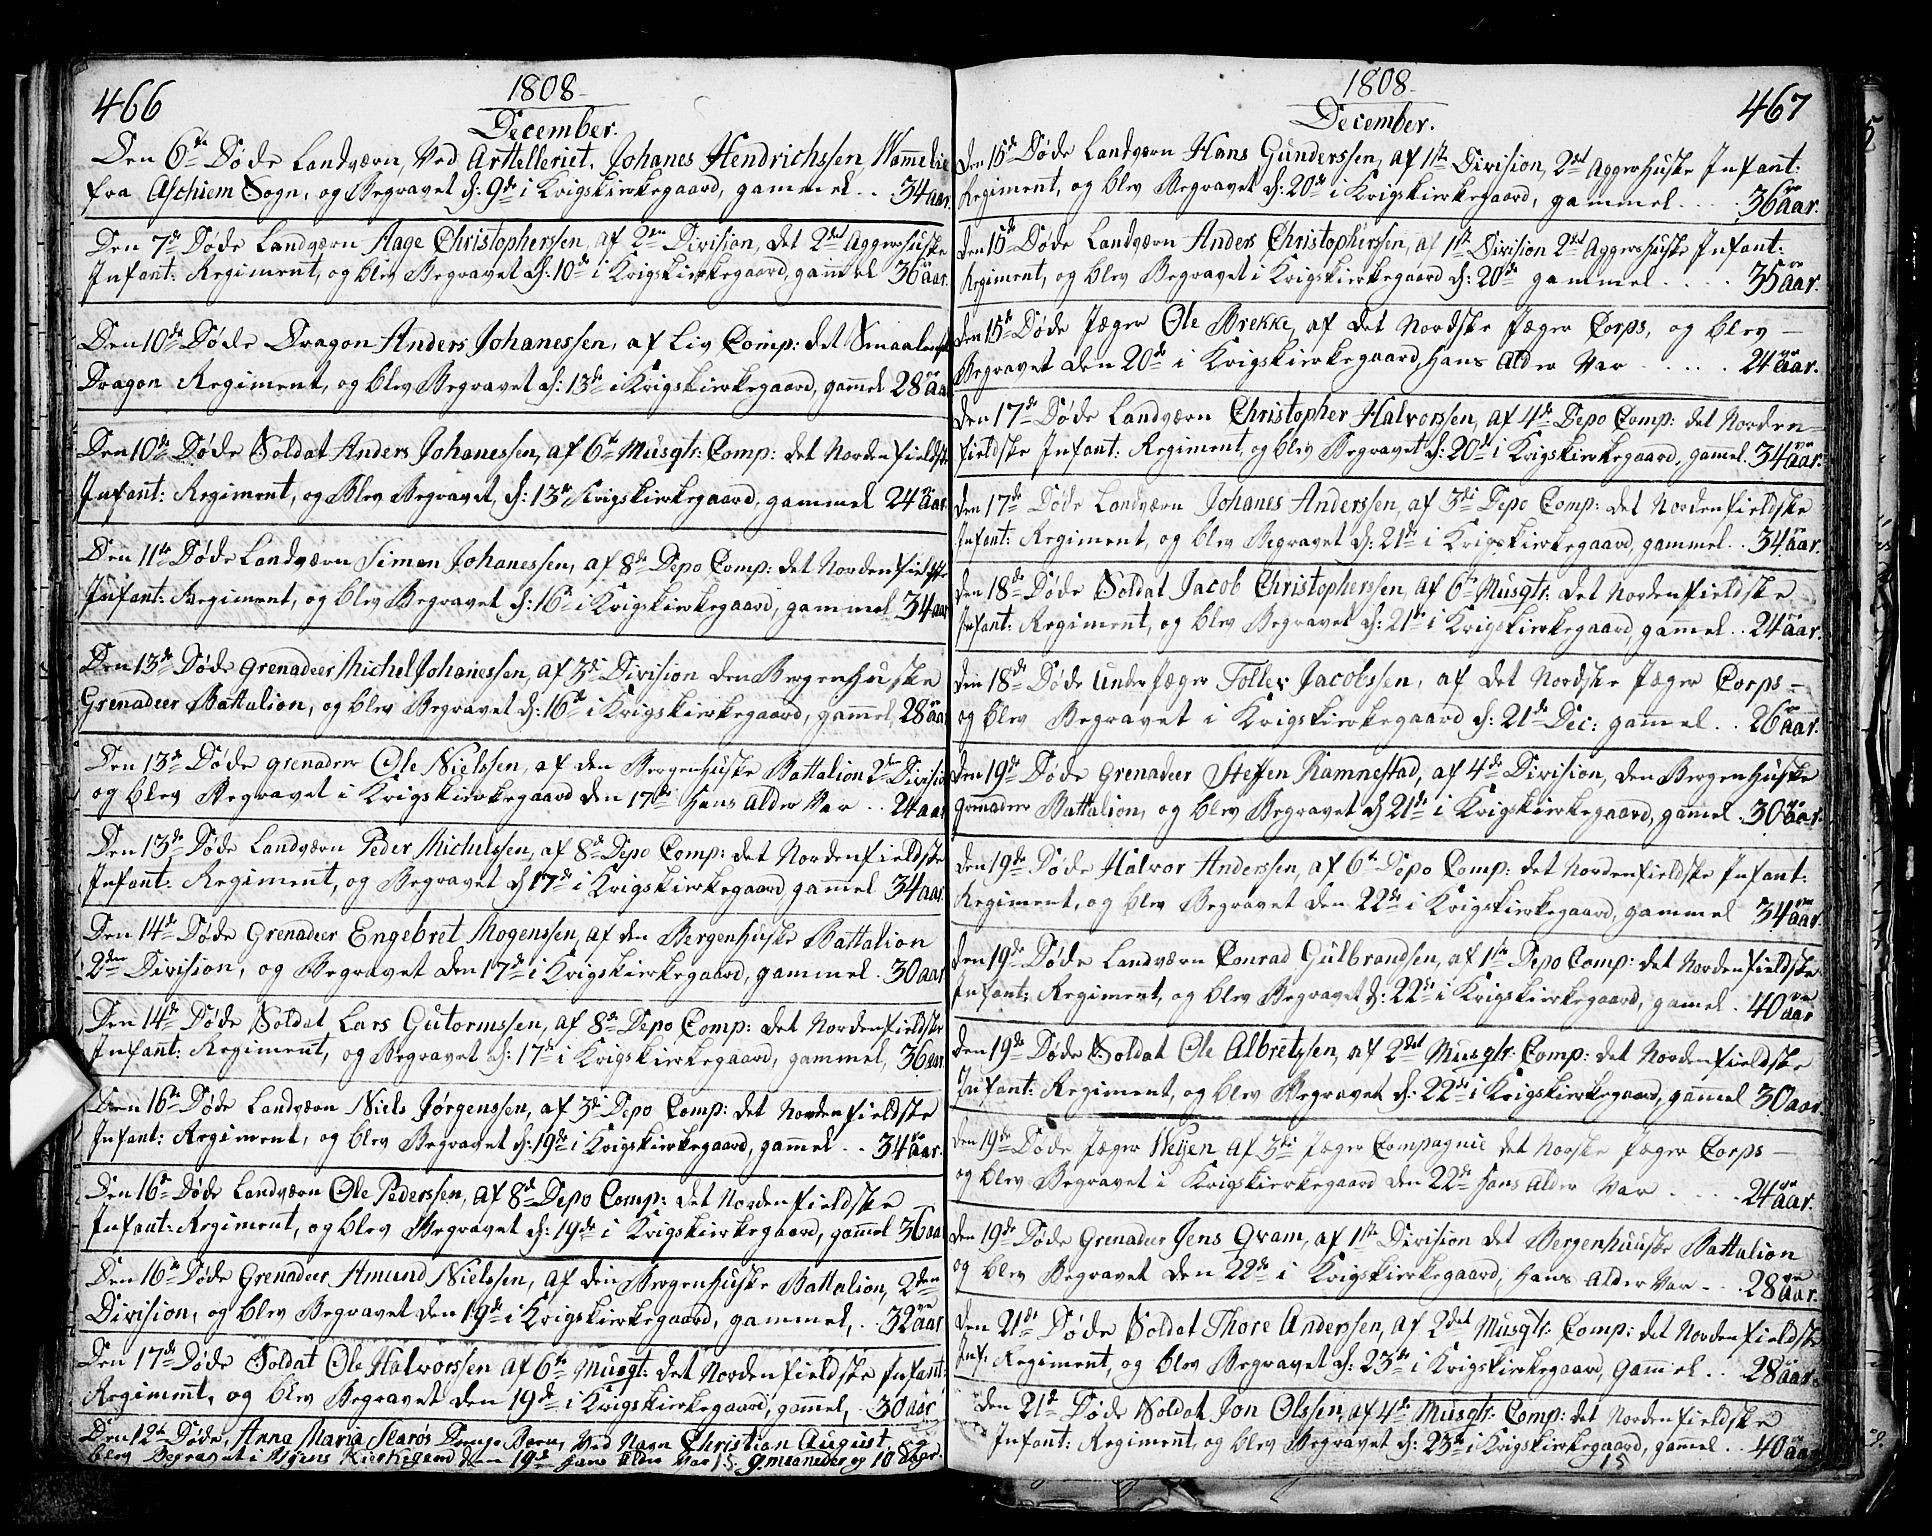 466
1808
December.
Den 6te Døde Landværn, Ved Arttelleriet, Johanes Hendrichssen,
fra Aschiem Sogn, og Begravet d: 9de i Krigskirkegaard, gammel . . 34 aar.
Den 7de Døde Landværn Aage Christophersen, af 2den Division, det 2det Aggershuske
Infant: Regiment, og blev Begravet d: 10de i Krigskirkegaard, gammel 36 aar.
Den 10de Døde Dragon Anders Johanessen, af Liv Comp: det Smaalenske
Dragon Regiment, og blev Begravet d: 13de i Krigskirkegaard, gammel 28 aar
Den 10de Døde Soldat Anders Johanessen, af 6te Musqtr: Comp: det Nordenfieldske
Infant: Regiment, og Blev Begravet, d: 13de Krigskirkegaard, gammel 24 aar
Den 11te Døde Landværn Simon Johanessen, af 8de Depo Comp: det Nordenfieldske
Infant: Regiment, og blev Begravet d: 16de i Krigskirkegaard, gammel 34 aar
Den 13de Døde Grenadeer Michel Johanessen, af 3die Division den Bergenhuske
Grenadeer Battalion, og blev Begravet d: 16de i Krigskirkegaard, gammel, 28 aar
Den 13de Døde grenadeer Ole Nielssen, af den Bergenhuske Battalion 2den Division
og blev Begravet i Krigskirkegaard den 17de Hans Alder Var . . 24 aar
Den 13de Døde Landværn Peder Michelssen, af 8de Depo Comp: det Nordenfieldske
Infant: Regiment, og Begravet d 17de i Krigskirkegaard, gamel 34 aar.
Den 14de Døde Grenadeer Engebret Mogenssen, af den Bergenhuske Battalion
2den Division, og Begravet den 17de i Krigskirkegaard, gammel . 30 aar
Den 14de Døde Soldat Lars Gutormssen, af 8de Depo Comp: det Nordenfieldske
Infant: Regiment, og Begravet d: 17de i Krigskirkegaard, gammel, 36 aar
Den 16de Døde Landværn Niels Jørgenssen, af 3die Depo Comp: det Nordenfieldske
Infant: Regiment, og blev Begravet d: 19de i Krigskirkegaard, gammel . . 34 aar.
Den 16de Døde Landværn Ole Pederssen, af 8de Depo Comp: det Nordenfieldske
Infant: Regiment, og blev Begravet d: 19de i Krigskirkegaard, gammel 36 aar
Den 16de Døde Grenadeer Amund Nielssen, af den Bergenhuske Battalion, 2den
Division, og blev Begravet den 19de i Krigskirkegaard, gammel, . . 32 aar
Den 17de Døde Soldat Ole Halvorssen af 6te Musqt: det Nordenfieldske Infant:
Regimmt, og blev Begravet den 19de i Krigskirkegaard, gammel, . 30 aar
Den 12te Døde, Anna Maria Dreng Barn, Ved Navn Christian August
blev Begravet i Kirkegaard den 19de hans Alder Var 9 maaneder og 10
467
1808
December.
Den 15de Døde Landværn Hans Gunderssen, af 1ste Division, 2det Aggerhuske Infant:
Regiment, og blev Begravet d: 20de i Krigskirkegaard, gammel . . . . 36 aar.
Den 15de Døde Landværn Anders Christophersen, af 1ste Division 2det Aggershuske Infant:
Regiment, og blev Begravet i Krigskirkegaard d: 20de gammel . . . . 35 aar.
Den 15de Døde Jæger Ole Brekke, af det Nordske Jæger Corps, og blev —
Begravet den 20de i Krigskirkegaard, Hans Alder Var . . . . . 24 aar.
Den 17de Døde Landværn Christopher Halvorssen, af 4de Depo Comp: det Norden-
fieldske Infant: Regiment, og blev Begravet d: 20de i Krigskirkegaard, gamel. 34 aar.
Den 17de Døde Landværn Johanes Anderssen, af 3die Depo Comp: det Nordenfieldske
Infant: Regiment, og blev Begravet d: 21de i Krigskirkegaard, gammel. . 34 aar.
Den 18de Døde Soldat Jacob Christopherssen, af 6te Musqtr: det Nordenfieldske
Infant: Regiment, og blev Begravet d: 21de i Krigskirkegaard, gammel . . 24 aar.
Den 18de Døde Under Jæger Tollev Jacobssen, af det Nordske Jæger Corps —
og blev Begravet i Krigskirkegaard d: 21de Dec: gammel . . 26 aar.
Den 19de Døde Grenadeer Steffen Ramnestad, af 4de Division, den Bergenhuske
Grenadeer Battalion, og blev Begravet d 21de i Krigskirkegaard, gammel . 30 aar.
Den 19de Døde Halvor Anderssen, af 6te Depo Comp: det Nordenfieldske Infant:
Regiment, og blev Begravet den 22de i Krigskirkegaard, gammel 34 aar.
Den 19de Døde Landværn Conrad Gulbrandsen, af 1ste Depo Comp: det Nordenfieldske
Infant: Regiment, og blev Begravet d: 22de i Krigskirkegaard, gamel . 40 aar
Den 19de Døde Soldat Ole Albretssen, af 2det Musqtr: Comp: det Nordenfieldske
Infant: Regiment, og blev Begravet d: 22de i Krigskirkegaard, gammel 30 aar.
Den 19de Døde Jæger Weyen af 3die Jæger Compagnie det Norske Jæger Corps —
og blev Begravet i Krigskirkegaard den 22de Hans Alder Var . . . . 24 aar.
Den 19de Døde Grenadeer Jens Qvam, af 1ste Division det Bergenhuuske Battalion
og blev Begravet den 22de i Krigskirkegaard, Hans Alder Var . . . 28 aar.
Den 21de Døde Soldat Thore Anderssen, af 2det Musqtr: Comp: det Nordenfieldske
Inf: Regiment, og blev Begravet d: 23de i Krigskirkegaard, Gammel . . 28 aar.
Den 21de Døde Soldat Jon Olssen, af 4de Musqtr: Comp: det Nordenfieldske
Infant: Regiment, og blev Begravet d: 23de i Krigskirkegaard, gammel . . 40 aar
15